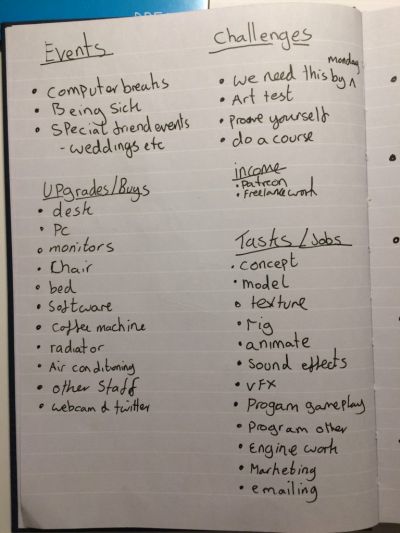 Events
• Computer breaks
• Being Sick
• Special friend events
- weddings etc
Upgrades/Buys
• desk
• Pc
• monitors
• Chair
• bed
• Software
• Coffee machine
• radiator
• Air conditioning
• other Staff
• webcam & twitter
Challenges
• we need this by ^ monday
• Art test
• Proove yourself
• do a course
income
• Patreon
• Freelance work
Tasks/Jobs
• concept
• model
• texture
• rig
• animate
• Sound effects
• VFX
• Progam gameplay
• Program other
• Engine work
• Marketing
• emailing